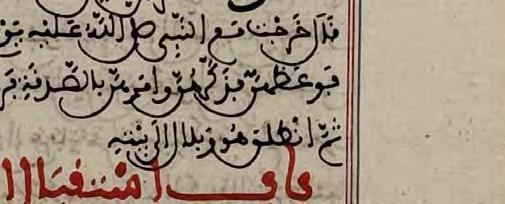 قال خرجت مع النبي صلى الله عليه يو
فوعظهن وذكرهن وامرهن بالصدقة فر
ثم انطلق هو وبلال الى بيته
باب استقبال ا